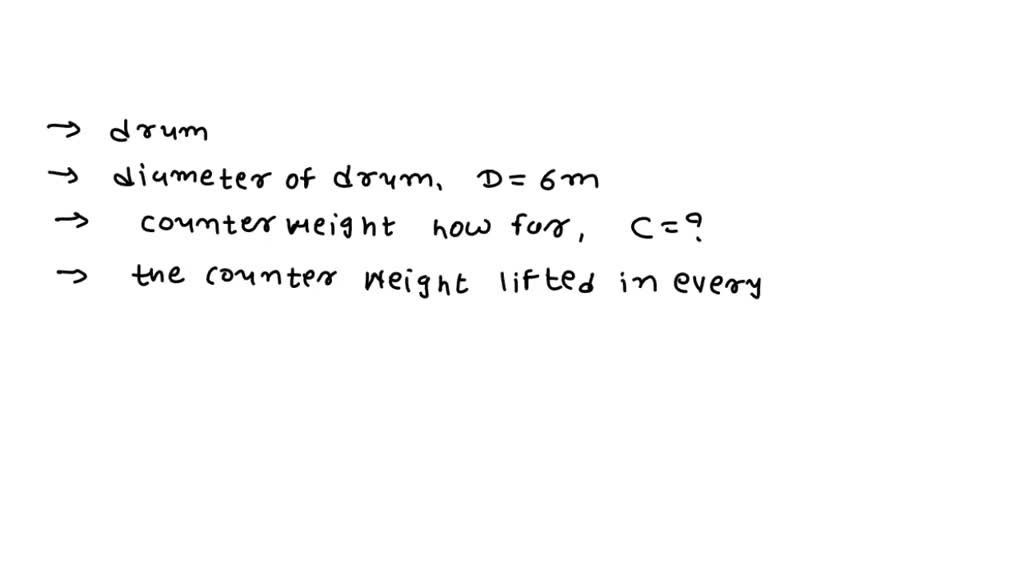 → drum
→ diameter of drum, D = 6m
→ counter weight how far, C = ?
→ the counter weight lifted in every